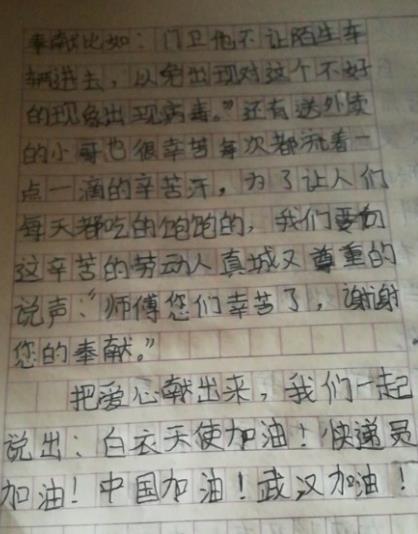 奉献比如：门卫他不让陌生车
辆进去，以免出现对这个不好
的现象出现病毒。”还有送外卖
的小哥也很幸苦每次都流着一
点一滴的辛苦汗，为了让人们
每天都吃的饱饱的，我们要向
这辛苦的劳动人真城又尊重的
说声：“师傅您们幸苦了，谢谢
您的奉献。”
把爱心献出来，我们一起
说出：白衣天使加油！快递员
加油！中国加油！武汉加油！